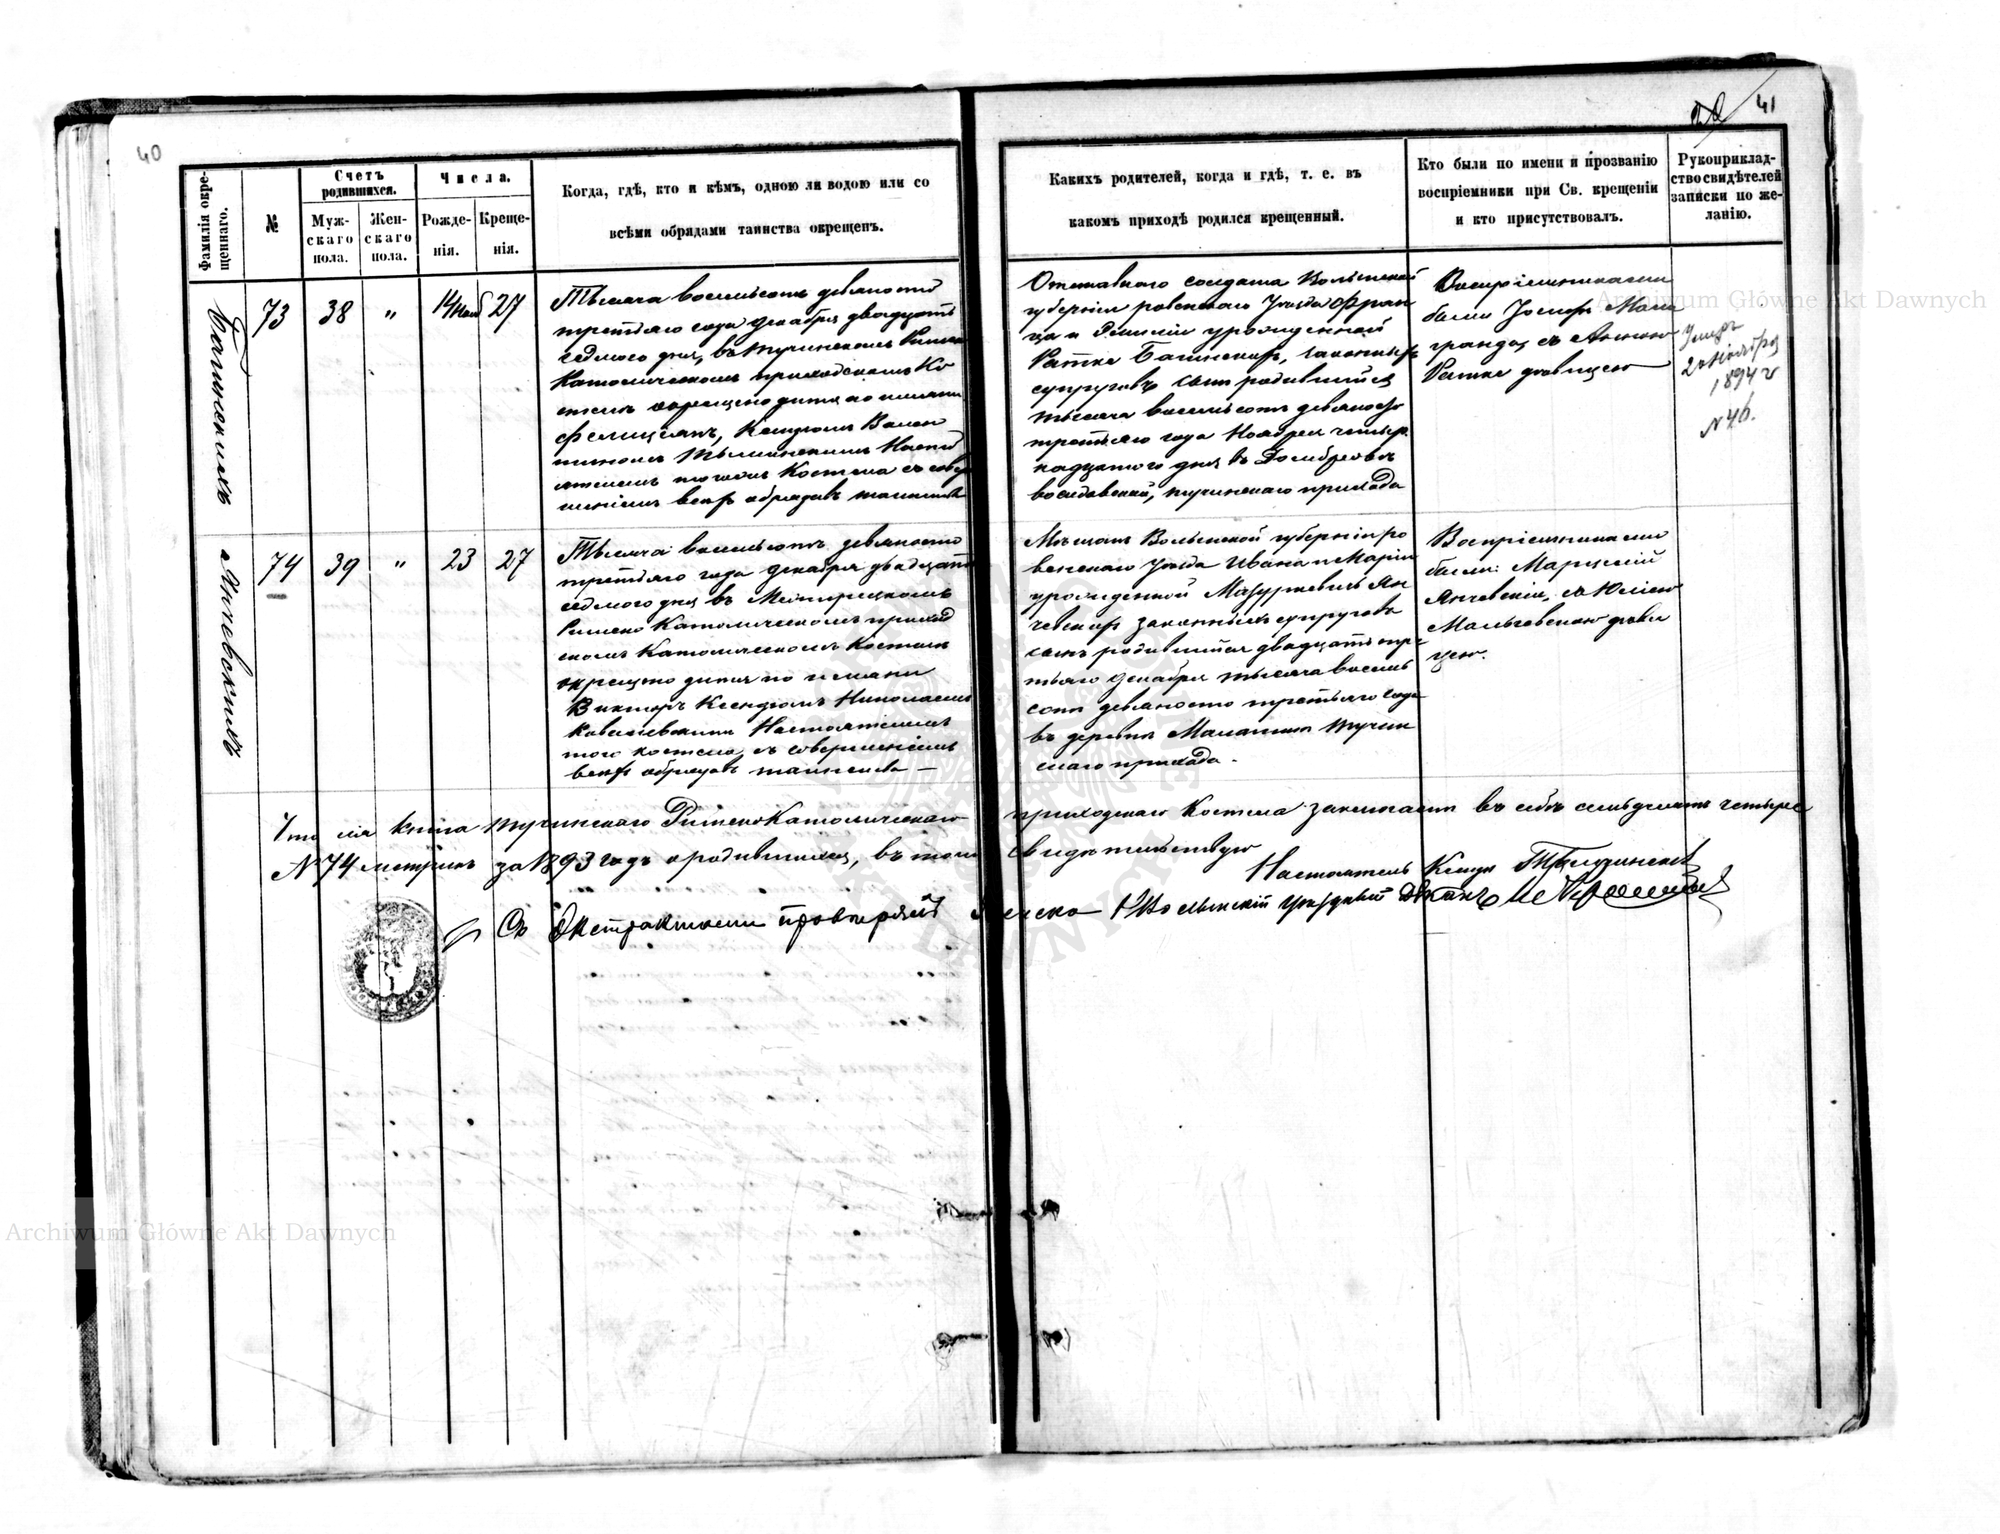 40
41
Фамилія окре-
щеннаго.
№
Счетъ
родившихся.
Муж-
скаго
пола.
Жен-
скаго
пола.
Числа.
Рожде-
нія.
Креще-
нія.
Когда, гдѣ, кто и кѣмъ, одною ли водою или со
всѣми обрядами таинства окрещенъ.
Какихъ родителей, когда и гдѣ, т. е. въ
какомъ приходѣ родился крещенный.
Кто были по имени и прозванію
воспріемники при Св. крещеніи
и кто присутствовалъ.
Рукоприклад-
ство свидѣтелей
записки по же-
ланію.
73
38
"
14 Нояб
27
Тысяча восемьсотъ девяносто
третьяго года Декабря двадцать
седмого дня, въ Тучинскомъ Римско
Католическомъ приходскомъ Ко
стелѣ окрещено дитя по имени
Фелиціянъ, Ксендзомъ Вален
тиномъ Настоя
телемъ того Костела съ совер
шеніемъ всѣхъ обрядовъ таинства
Отставного солдата Волынской
губерніи ровенскаго Уѣзда Фран
ца и Эмиліи урожденной
Ратке законныхъ
супруговъ сынъ родившійся
тысяча восемьсотъ девяносто
третьяго года Ноября четыр
надцатого дня въ
тучинскаго прихода
Воспріемниками
были Іосифъ
съ Анною
Ратке дѣвицею
Умеръ
2 Ноября
1894 г
№ 46.
74
39
"
23
27
Тысяча восемьсотъ девяносто
третьяго года Декабря двадцать
седмого дня въ Межирецкомъ
Римско Католическомъ приход
скомъ Католическомъ Костелѣ
окрещено дитя по имени
Викторъ Ксендзомъ Николаемъ
Настоятелемъ
того костела, съ совершеніемъ
всѣхъ обрядовъ таинства —
Мѣщанъ Волынской губерніи ро
венскаго Уѣзда Ивана и Маріи
урожденной Мазуркевичъ Ян
чевскихъ законныхъ супруговъ
сынъ родившійся двадцать тре
тьяго Декабря тысяча восемь
сотъ девяносто третьяго года
въ деревнѣ Тучин
скаго прихода.
Воспріемниками
были: Марцелій
Янчевскій, съ Юліею
дѣви
цею.
Янчевскихъ
Что сія книга Тучинскаго Римско Католическаго приходскаго Костела заключаетъ въ себѣ семьдесятъ четыре
№ 74 метрикъ за 1893 годъ о родившихся, въ томъ свидѣтельствую
Настоятель Ксендз
Съ Экстрактами провѣрялъ Уѣздный Деканъ
Archiwum Główne Akt Dawnych
Archiwum Główne Akt Dawnych